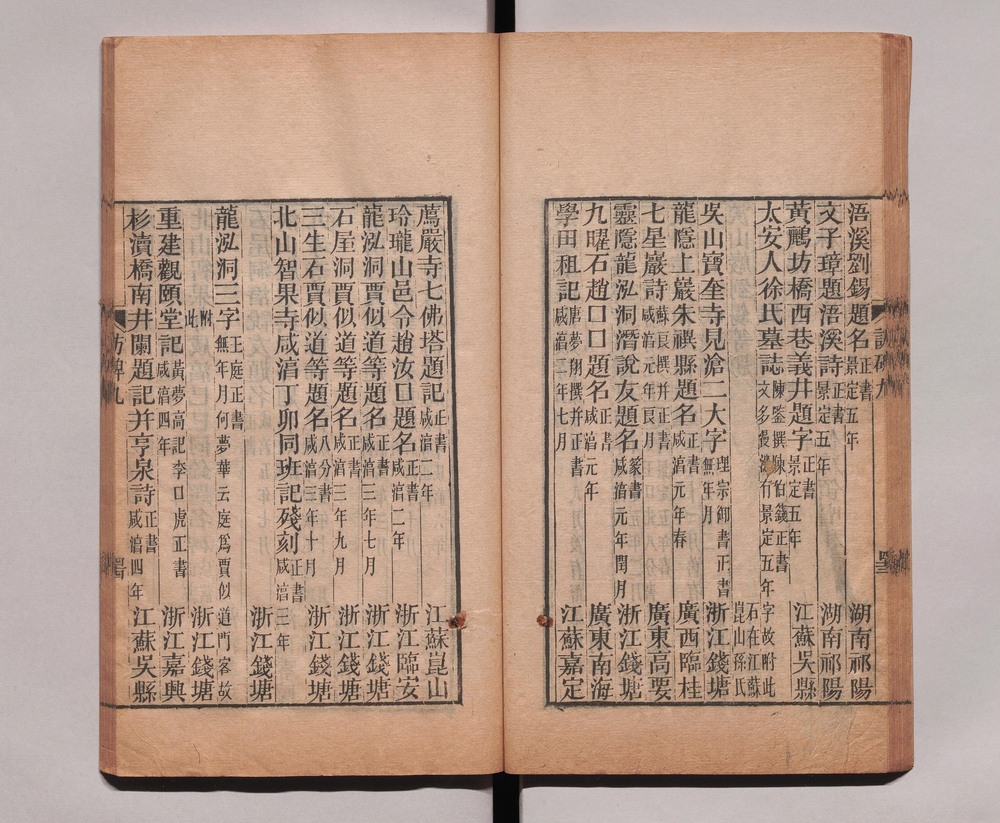 浯溪劉錫題名 正書 景定五年 湖南祁陽
文子璋題浯溪詩 正書 景定五年 湖南祁陽
黃鸝坊橋西巷義井題字 正書 景定五年 江蘇吳縣
太安人徐氏墓誌 陳鑒撰 陳伯錢正書 文多漫 有景定五年字故附此 石在江蘇崑山孫氏
吳山寶奎寺見滄二大字 理宗御書正書 無年月 浙江錢塘
龍隱上巖朱禩縣題名 正書 咸淳元年春 廣西臨桂
七星巖詩 蘇良撰并正書 咸淳元年良月 廣東高要
靈隱龍泓洞潛說友題名 篆書 咸淳元年閏月 浙江錢塘
九曜石趙口口題名 正書 咸淳元年 廣東南海
學田租記 唐夢翔撰并正書 咸淳二年七月 江蘇嘉定
薦嚴寺七佛塔題記 正書 咸淳二年 江蘇崑山
玲瓏山邑令趙汝口題名 正書 咸淳二年 浙江臨安
龍泓洞賈似道等題名 正書 咸淳三年七月 浙江錢塘
石屋洞賈似道等題名 正書 咸淳三年九月 浙江錢塘
三生石賈似道等題名 八分書 咸淳三年十月 浙江錢塘
北山智果寺咸淳丁卯同班記殘刻 正書 咸淳三年 浙江錢塘
龍泓洞三字 王庭正書 無年月何夢華云庭爲賈似道門客故附此 浙江錢塘
重建觀頤堂記 黃夢高記 李口虎正書 咸淳四年 浙江嘉興
杉瀆橋南井闌題記并亨泉詩 正書 咸淳四年 江蘇吳縣